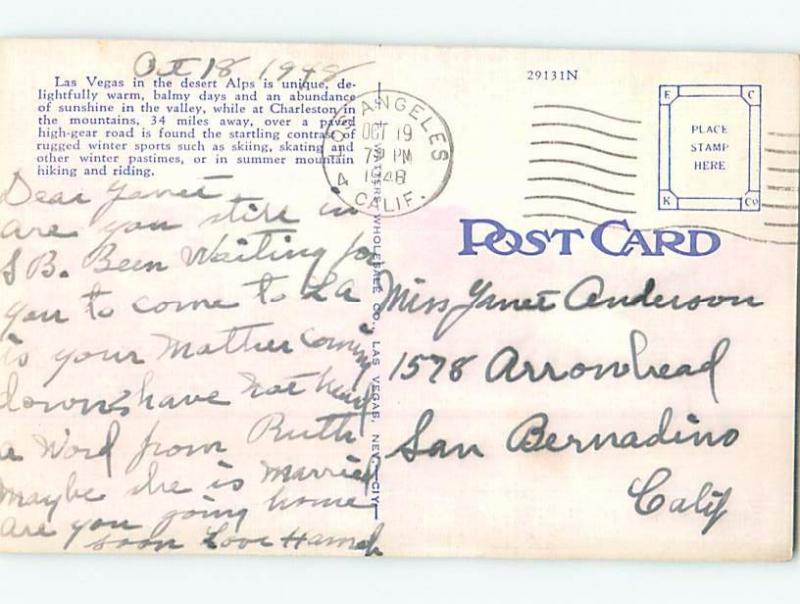 Oct 18 1948
Las Vegas in the desert Alps is unique, de-
lightfully warm, balmy days and an abundance
of sunshine in the valley, while at Charleston in
the mountains, 34 miles away, over a paved
high-gear road is found the startling contrast of
rugged winter sports such as skiing, skating and
other winter pastimes, or in summer mountain
hiking and riding.
Dear Yanet
are you still in
S B. Been Waiting for
you to come to La
is your Mather Coming
down have not had
a Word from Ruth
Maybe she is Married
are you going home
soon Love Hannah
WHOLESALE CO., LAS VEGAS, NEV.
LOS ANGELES
OCT 19
7 PM
1948
4 CALIF.
29131N
E C
PLACE
STAMP
HERE
K Co
POST CARD
Miss Yanet Anderson
1578 Arrowhead
San Bernadino
Calif